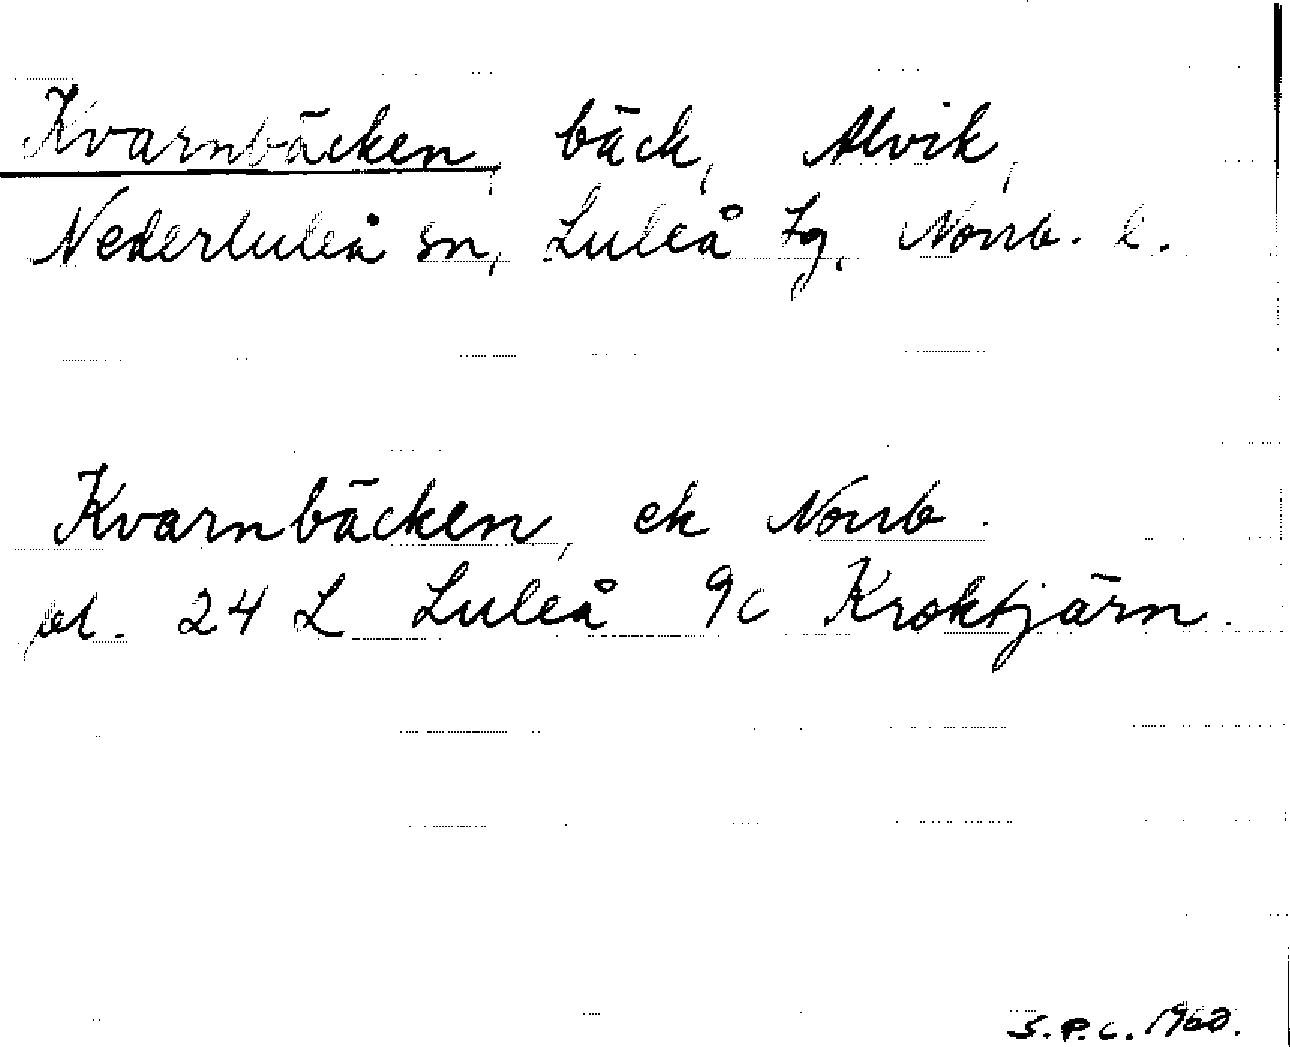 Kvarnbäcken, bäck, Alvik,
Nederluleå sn, Luleå tg, Norrb. l.
Kvarnbäcken, ek Norrb.
bl. 24 L Luleå 9c Kroktjärn.
S.P.C. 1960.